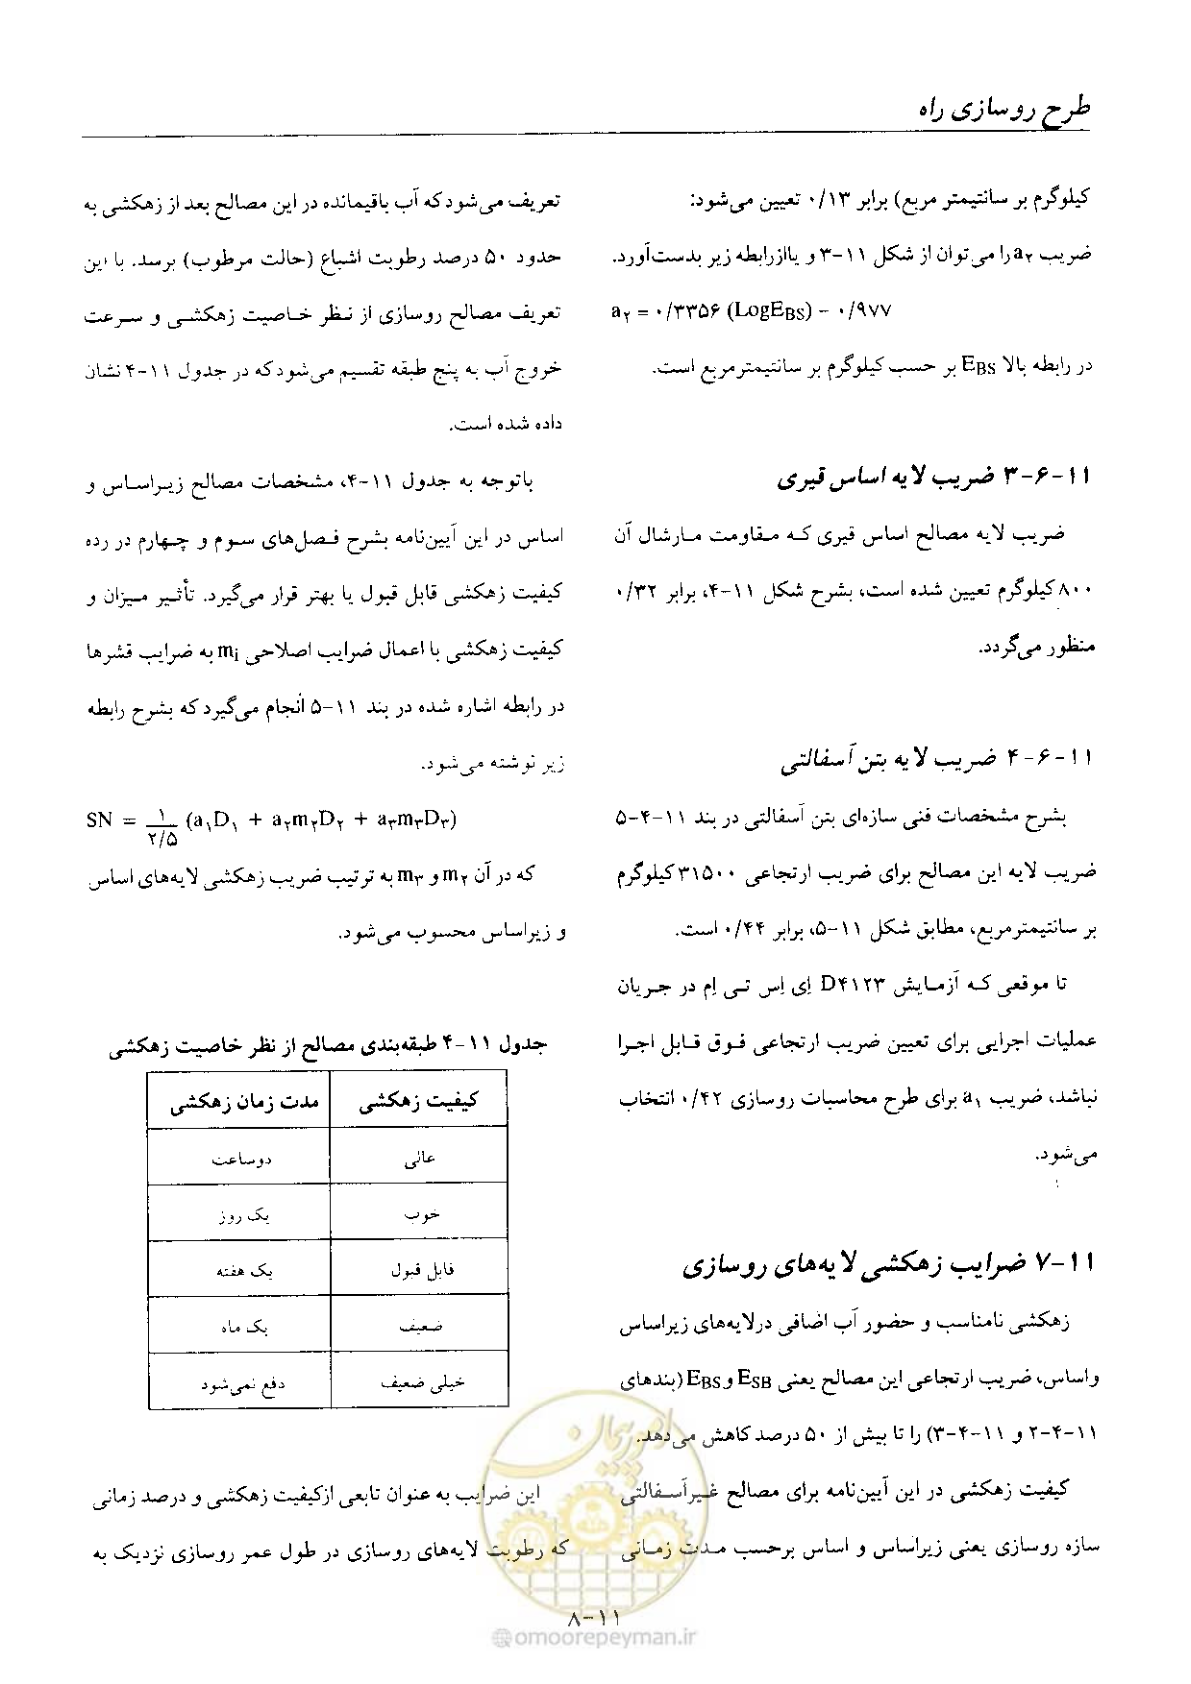 طرح روسازی راه
کیلوگرم بر سانتیمتر مربع) برابر ۰/۱۳ تعیین می‌شود:
ضریب a۲ را می‌توان از شکل ۱۱-۳ و یا از رابطه زیر بدست آورد.
a۲ = ۰/۳۳۵۶ (LogEBS) - ۰/۹۷۷
در رابطه بالا EBS بر حسب کیلوگرم بر سانتیمترمربع است.
۱۱-۶-۳ ضریب لایه اساس قیری
ضریب لایه مصالح اساس قیری که مقاومت مارشال آن
۸۰۰ کیلوگرم تعیین شده است، بشرح شکل ۱۱-۴، برابر ۰/۳۲
منظور می‌گردد.
۱۱-۶-۴ ضریب لایه بتن آسفالتی
بشرح مشخصات فنی سازه‌ای بتن آسفالتی در بند ۱۱-۴-۵
ضریب لایه این مصالح برای ضریب ارتجاعی ۳۱۵۰۰ کیلوگرم
بر سانتیمترمربع، مطابق شکل ۱۱-۵، برابر ۰/۴۴ است.
تا موقعی که آزمایش D۴۱۲۳ اِی اِس تی اِم در جریان
عملیات اجرایی برای تعیین ضریب ارتجاعی فوق قابل اجرا
نباشد، ضریب a۱ برای طرح محاسبات روسازی ۰/۴۲ انتخاب
می‌شود.
۱۱-۷ ضرایب زهکشی لایه‌های روسازی
زهکشی نامناسب و حضور آب اضافی درلایه‌های زیراساس
واساس، ضریب ارتجاعی این مصالح یعنی ESB و EBS (بندهای
۱۱-۴-۲ و ۱۱-۴-۳) را تا بیش از ۵۰ درصد کاهش می‌دهد.
کیفیت زهکشی در این آیین‌نامه برای مصالح غیرآسفالتی
سازه روسازی یعنی زیراساس و اساس برحسب مدت زمانی
تعریف می‌شود که آب باقیمانده در این مصالح بعد از زهکشی به
حدود ۵۰ درصد رطوبت اشباع (حالت مرطوب) برسد. با این
تعریف مصالح روسازی از نظر خاصیت زهکشی و سرعت
خروج آب به پنج طبقه تقسیم می‌شود که در جدول ۱۱-۴ نشان
داده شده است.
باتوجه به جدول ۱۱-۴، مشخصات مصالح زیراساس و
اساس در این آیین‌نامه بشرح فصل‌های سوم و چهارم در رده
کیفیت زهکشی قابل قبول یا بهتر قرار می‌گیرد. تأثیر میزان و
کیفیت زهکشی با اعمال ضرایب اصلاحی mi به ضرایب قشرها
در رابطه اشاره شده در بند ۱۱-۵ انجام می‌گیرد که بشرح رابطه
زیر نوشته می‌شود.
SN = ۱/۲/۵ (a۱D۱ + a۲m۲D۲ + a۳m۳D۳)
که در آن m۲ و m۳ به ترتیب ضریب زهکشی لایه‌های اساس
و زیراساس محسوب می‌شود.
جدول ۱۱-۴ طبقه‌بندی مصالح از نظر خاصیت زهکشی
کیفیت زهکشی مدت زمان زهکشی
عالی دوساعت
خوب یک روز
قابل قبول یک هفته
ضعیف یک ماه
خیلی ضعیف دفع نمی‌شود
این ضرایب به عنوان تابعی ازکیفیت زهکشی و درصد زمانی
که رطوبت لایه‌های روسازی در طول عمر روسازی نزدیک به
۱۱-۸
امور پیمان
omoorepeyman.ir